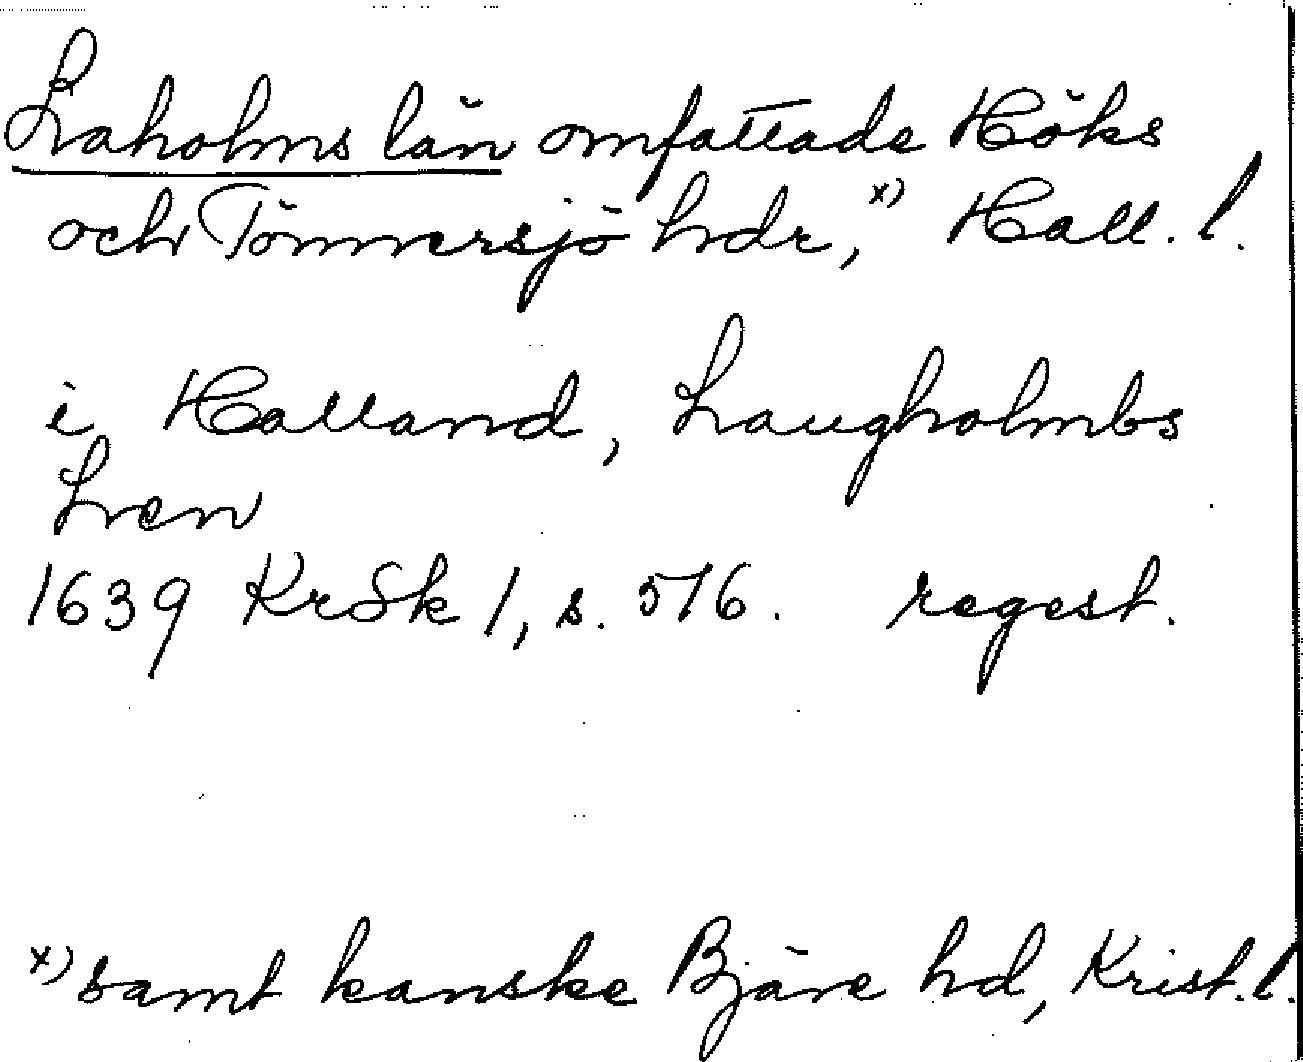 Laholms län omfattade Höks
och Tönnersjö hdr,x) Hall. l.
i Halland, Laugholmbs
Len
1639 KrSk 1, s. 576. regest.
x) samt kanske Bjäre hd, Krist. l.